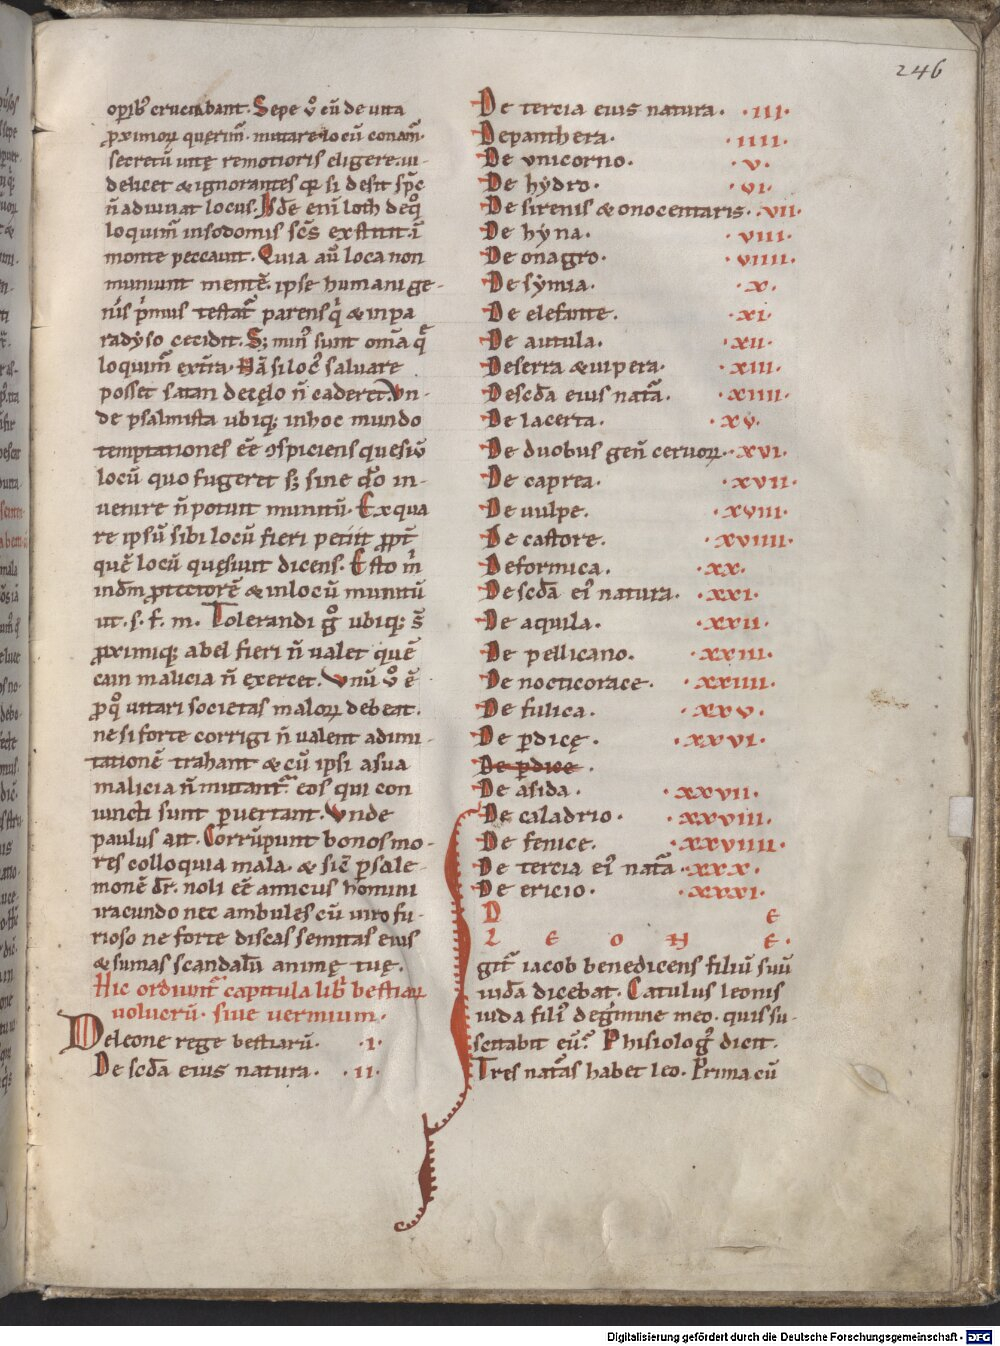 246
opib᷒ cruciabant. Sepe ů cũ de uita
ꝓximoꝝ querim̃. mutare locũ conam̃.
secretũ uitę remotioris eligere. ui-
delicet & ignorantes qꝛ si desit sp̃c
ñ adiuuat locus. Isdẽ enĩ loth de q̊
loquim̃ in sodomis sc̃s extitit. ĩ
monte peccauit. Quia aũ loca non
muniunt mentẽ. ipse humani ge-
nĩs p̃mus testat᷑ parens q̇ & in pa
radyso cecidit. S; min᷒ sunt om̃a q̃
loquim̃ ext̃a. Nã si loc᷒ saluare
posset satan de cęlo ñ caderet. Vn-
de psalmista ubiq; in hoc mundo
temptationes eẽ ꝯspiciens quesiũ
locũ quo fugeret s; sine d̃o in-
uenire ñ potuit munitũ. Ex qua
re ipsũ sibi locũ fieri petiit ꝓpt̃
quẽ locũ quęsiuit dicens. Esto m̃
in dm̃ ꝓtectorẽ & in locũ munitũ
ut. s. f. m. Tolerandi g̊ ubiq; s̃
ꝓximiq; abel fieri ñ ualet quẽ
cain malicia ñ exercet. Vnũ ů ẽ
ꝓ q̊ uitari societas maloꝝ debeat.
ne si forte corrigi ñ ualent ad imi-
tationẽ trahant & cũ ipsi a sua
malicia ñ mutant᷑ eos qui con
iuncti sunt ꝑuertant. Vnde
paulus ait. Corrũpunt bonos mo-
res colloquia mala. & sic̃ ꝑ sale-
monẽ dr̃. noli eẽ amicus homini
iracundo nec ambules cũ uiro fu-
rioso ne forte discas semitas eius
& sumas scandalũ animę tuę.
Hic ordiunt᷑ capitula lib̃ bestiaꝝ
uolucrũ. siue uermium.
De leone rege bestiarũ. .I.
De scd̃a eius natura. .II.
De tercia eius natura. .III.
De panthera. .IIII.
De unicorno. .V.
De hydro. .VI.
De sirenis & onocentaris. .VII.
De hyna. .VIII.
De onagro. .VIIII.
De symia. .X.
De elefante. .XI.
De autula. .XII.
De serra & uipera. .XIII.
De scd̃a eius nat̃a. .XIIII.
De lacerta. .XV.
De duobus geñ ceruoꝝ. .XVI.
De caprea. .XVII.
De uulpe. .XVIII.
De castore. .XVIIII.
De formica. .XX.
De scd̃a ei᷒ natura. .XXI.
De aquila. .XXII.
De pellicano. .XXIII.
De nocticorace. .XXIIII.
De fulica. .XXV.
De ꝑdicę. .XXVI.
De ꝑdice.
De asida. .XXVII.
De caladrio. .XXVIII.
De fenice. .XXVIIII.
De tercia ei᷒ nat̃a. .XXX.
De ericio. .XXXI.
D E
L E O N E.
Igit᷑ iacob benedicens filiũ suũ
iudã dicebat. Catulus leonis
iuda fili᷒ de g̃mine meo. quis su-
scitabit eũ? Phisiolog᷒ dicit.
Tres nat̃as habet leo. Prima cũ
Digitalisierung gefördert durch die Deutsche Forschungsgemeinschaft - DFG